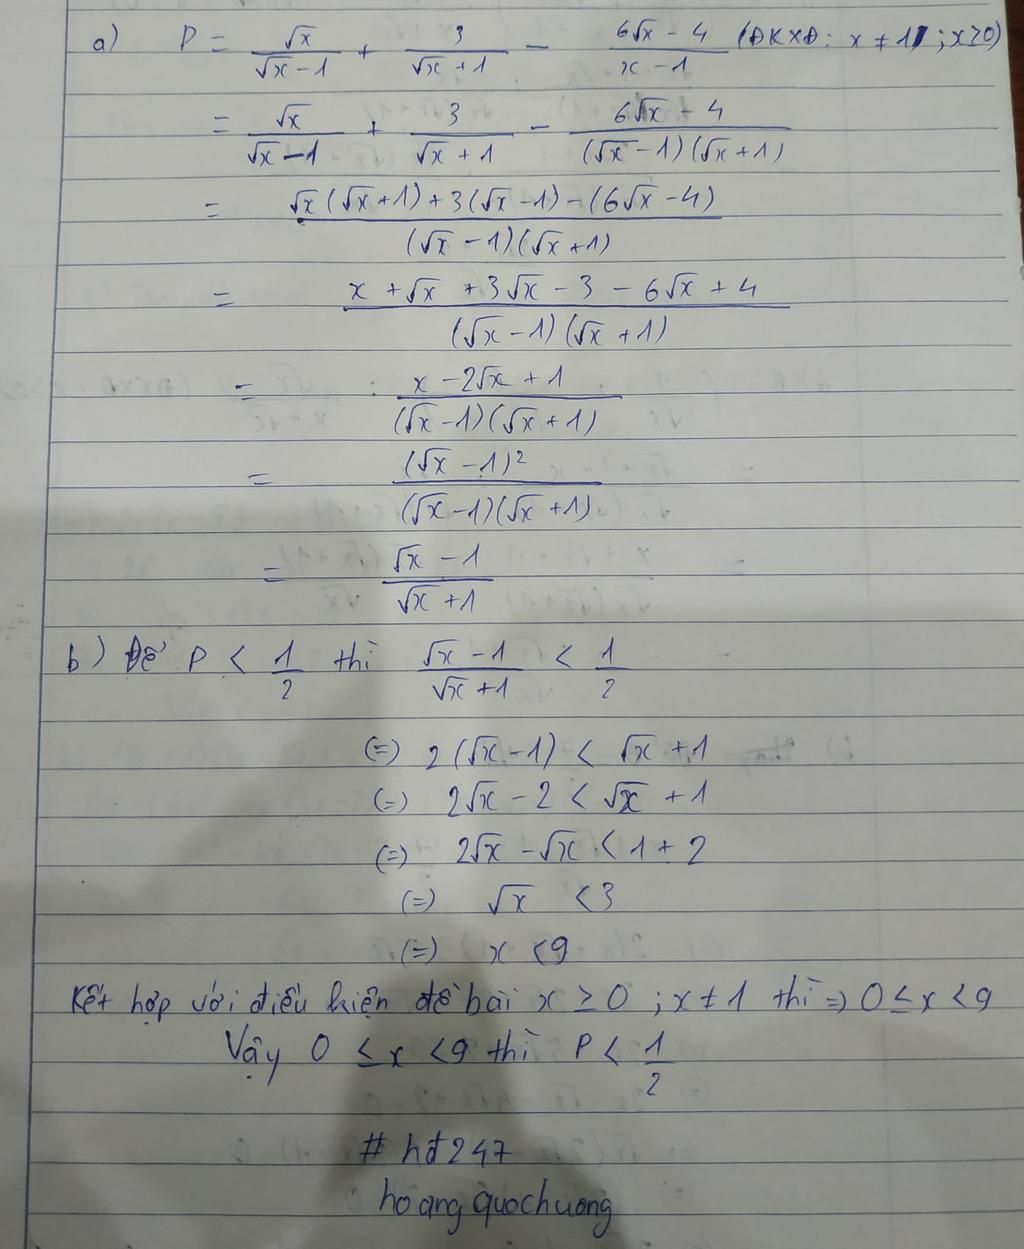 a) P = √x/(√x - 1) + 3/(√x + 1) - (6√x - 4)/(x - 1) (ĐKXĐ: x ≠ 1; x ≥ 0)
= √x/(√x - 1) + 3/(√x + 1) - (6√x - 4)/((√x - 1)(√x + 1))
= (√x(√x + 1) + 3(√x - 1) - (6√x - 4))/((√x - 1)(√x + 1))
= (x + √x + 3√x - 3 - 6√x + 4)/((√x - 1)(√x + 1))
= (x - 2√x + 1)/((√x - 1)(√x + 1))
= (√x - 1)²/((√x - 1)(√x + 1))
= (√x - 1)/(√x + 1)
b) Để P < 1/2 thì (√x - 1)/(√x + 1) < 1/2
(=) 2(√x - 1) < √x + 1
(=) 2√x - 2 < √x + 1
(=) 2√x - √x < 1 + 2
(=) √x < 3
(=) x < 9
Kết hợp với điều kiện đề bài x ≥ 0 ; x ≠ 1 thì => 0 ≤ x < 9
Vậy 0 ≤ x < 9 thì P < 1/2
# hđ247
hoangquochuong